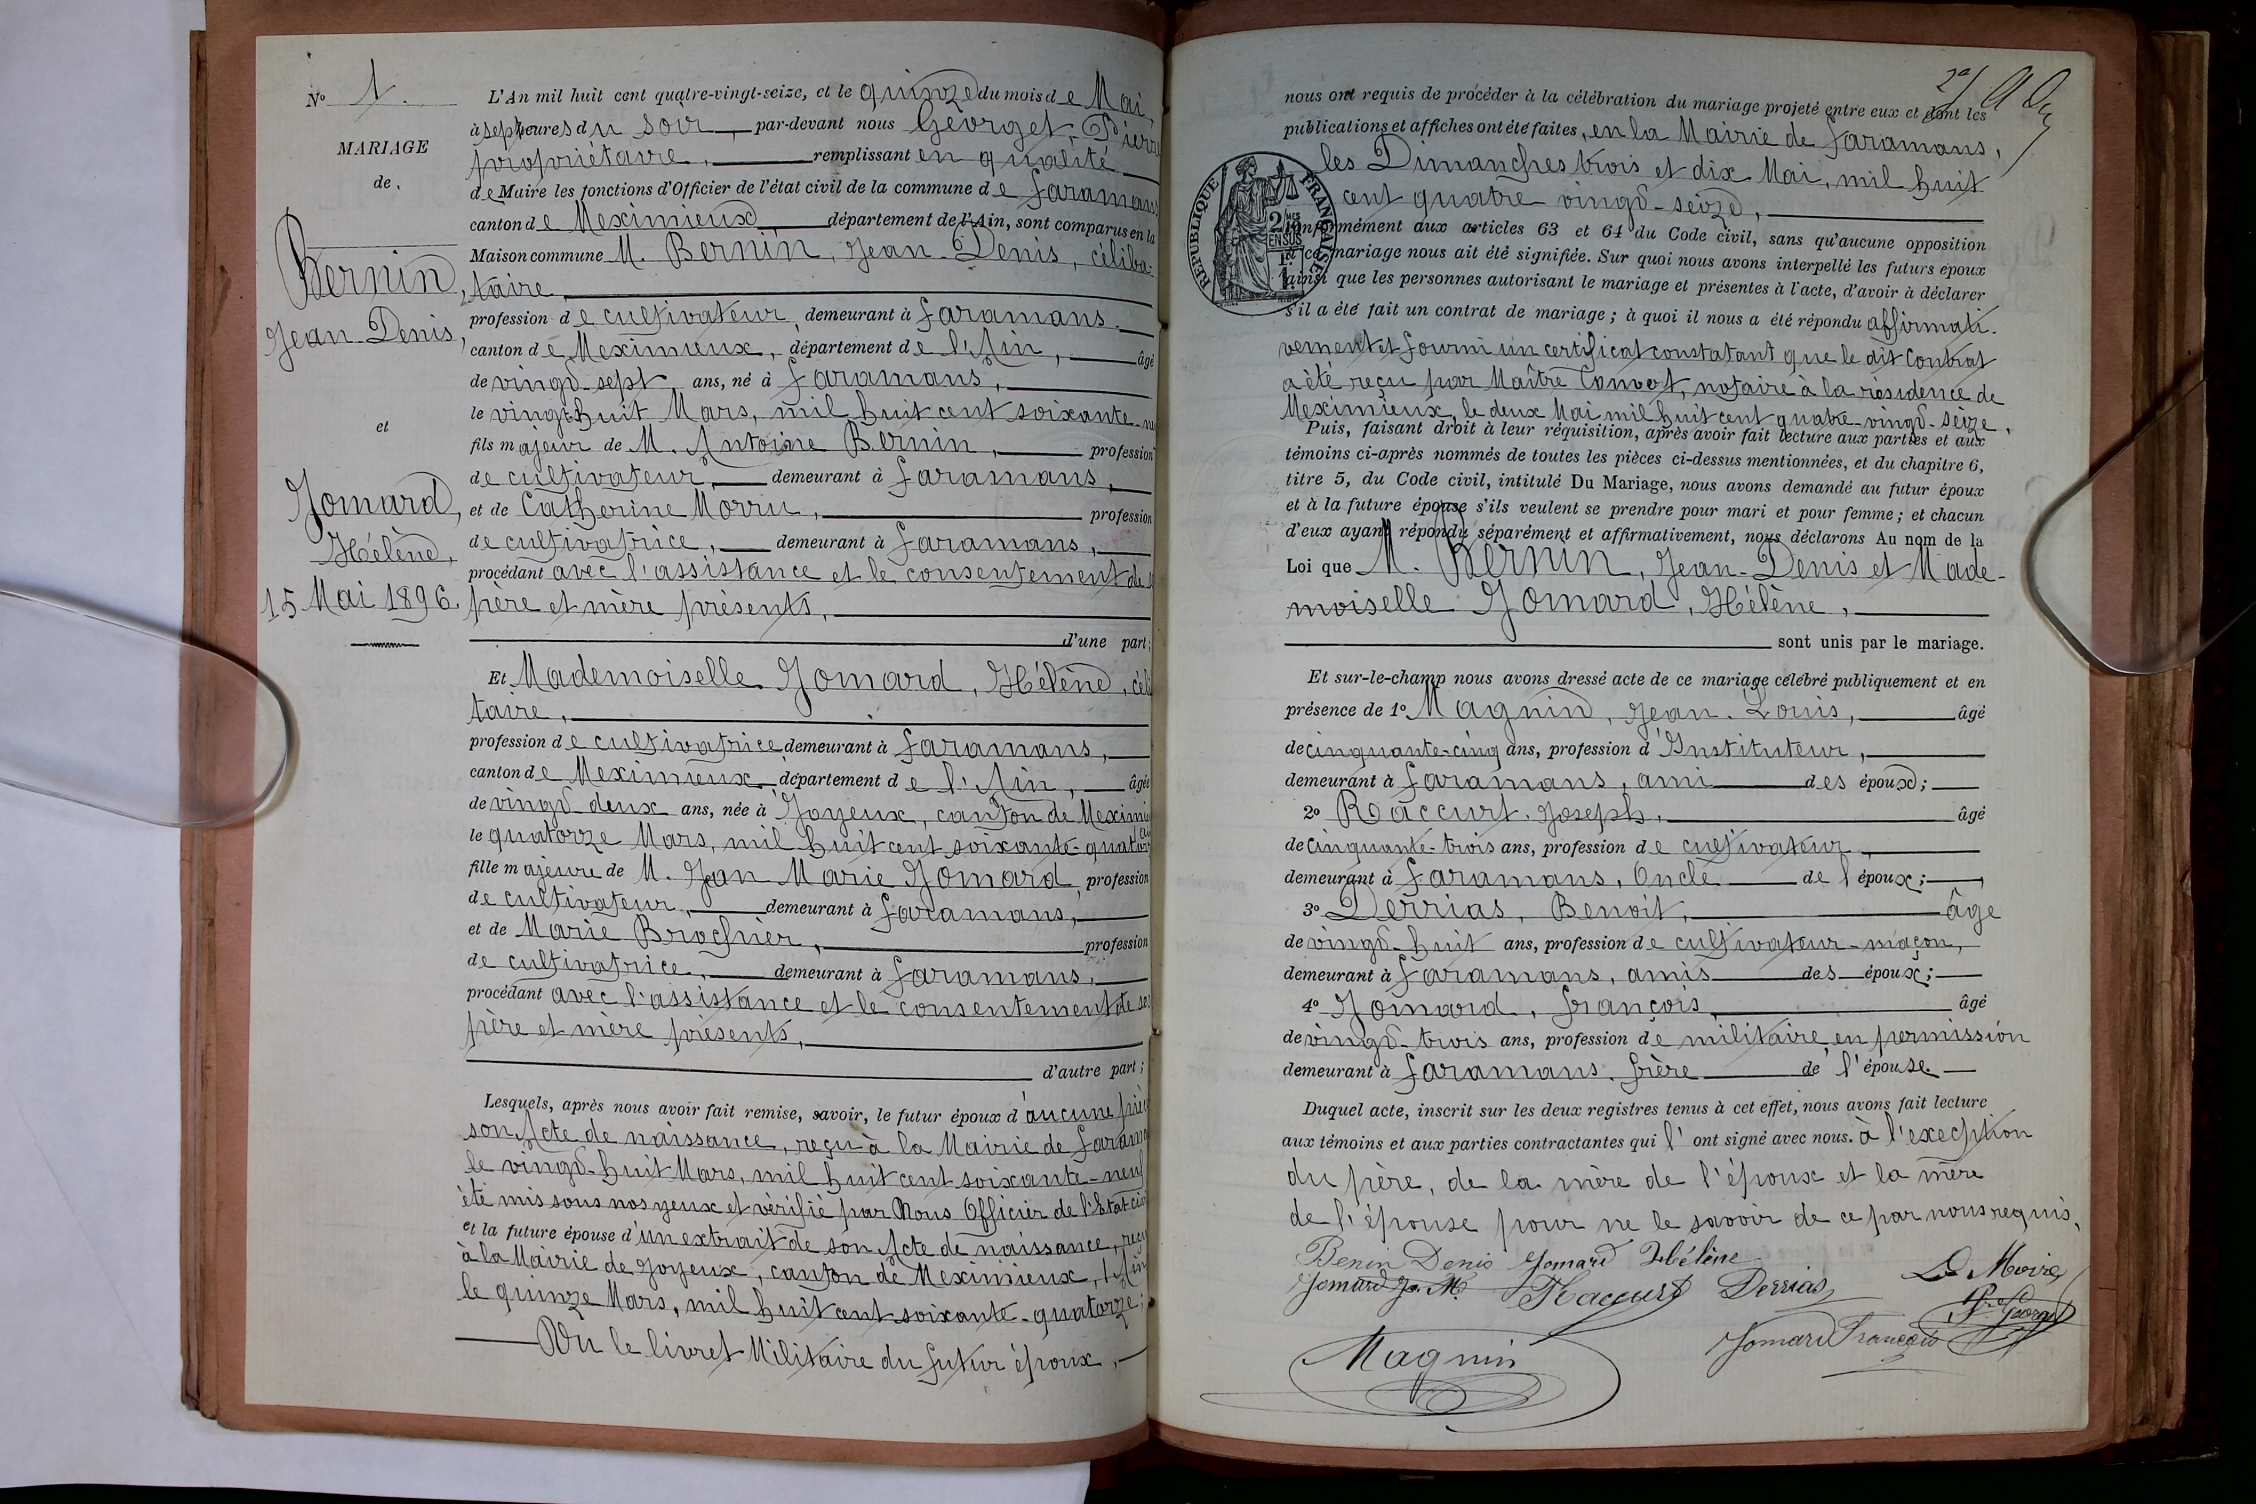 N° 1.
MARIAGE
de
Bernin,
Jean-Denis,
et
Jomard,
Hélène,
15 Mai 1896.
L'An mil huit cent quatre-vingt-seize, et le quinze du mois de Mai,
à sept heures du soir, par-devant nous Georget, Pierre
propriétaire, remplissant en qualité
de Maire les fonctions d'Officier de l'état civil de la commune de Faramans
canton de Meximieux département de l'Ain, sont comparus en la
Maison commune M. Bernin, Jean-Denis, céliba-
taire
profession de cultivateur, demeurant à Faramans.
canton de Meximieux, département de l'Ain, âgé
de vingt-sept ans, né à Faramans,
le vingt-huit Mars, mil huit cent soixante-
fils majeur de M. Antoine Bernin, profession
de cultivateur, demeurant à Faramans,
et de Catherine Morru, profession
de cultivatrice, demeurant à Faramans,
procédant avec l'assistance et le consentement de
père et mère présents,
d'une part;
Et Mademoiselle Jomard, Hélène, céli
taire,
profession de cultivatrice demeurant à Faramans,
canton de Meximieux département de l'Ain, âgée
de vingt-deux ans, née à Joyeux, canton de Meximi
le quatorze Mars, mil huit cent soixante-quator
fille majeure de M. Jean Marie Jomard, profession
de cultivateur, demeurant à Faramans,
et de Marie Brochier, profession
de cultivatrice, demeurant à Faramans,
procédant avec l'assistance et le consentement de ses
père et mère présents,
d'autre part;
Lesquels, après nous avoir fait remise, savoir, le futur époux d'aucune pièce
son Acte de naissance, reçu à la Mairie de Farama
le vingt-huit Mars, mil huit cent soixante-neuf
été mis sous nos yeux et vérifié par Nous Officier de l'Etat civ
et la future épouse d'un extrait de son Acte de naissance, reçu
à la Mairie de Joyeux, canton de Meximieux, (Ain
le quinze Mars, mil huit cent soixante-quatorze;
Vu le livret Militaire du futur époux,
nous ont requis de procéder à la célébration du mariage projeté entre eux et dont les
publications et affiches ont été faites, en la Mairie de Faramans,
les Dimanches trois et dix Mai, mil huit
cent quatre vingt-seize,
RÉPUBLIQUE FRANÇAISE
2/10 EN SUS
conformément aux articles 63 et 64 du Code civil, sans qu'aucune opposition
à ce mariage nous ait été signifiée. Sur quoi nous avons interpellé les futurs époux
ainsi que les personnes autorisant le mariage et présentes à l'acte, d'avoir à déclarer
s'il a été fait un contrat de mariage; à quoi il nous a été répondu affirmati-
vement et fourni un certificat constatant que le dit Contrat
a été reçu par Maître Convert, notaire à la résidence de
Meximieux, le deux Mai mil huit cent quatre-vingt-seize.
Puis, faisant droit à leur réquisition, après avoir fait lecture aux parties et aux
témoins ci-après nommés de toutes les pièces ci-dessus mentionnées, et du chapitre 6,
titre 5, du Code civil, intitulé Du Mariage, nous avons demandé au futur époux
et à la future épouse s'ils veulent se prendre pour mari et pour femme; et chacun
d'eux ayant répondu séparément et affirmativement, nous déclarons Au nom de la
Loi que M. Bernin, Jean-Denis et Made-
moiselle Jomard, Hélène,
sont unis par le mariage.
Et sur-le-champ nous avons dressé acte de ce mariage célébré publiquement et en
présence de 1° Magnin, Jean-Louis, âgé
de cinquante-cinq ans, profession d'Instituteur,
demeurant à Faramans, ami des époux;
2° Raccurt, Joseph, âgé
de cinquante-trois ans, profession de cultivateur,
demeurant à Faramans, Oncle de l'époux;
3° Derrias, Benoit, âge
de vingt-huit ans, profession de cultivateur-maçon,
demeurant à Faramans, amis des époux;
4° Jomard, François, âgé
de vingt-trois ans, profession de militaire en permission
demeurant à Faramans. frère de l'épouse.
Duquel acte, inscrit sur les deux registres tenus à cet effet, nous avons fait lecture
aux témoins et aux parties contractantes qui l'ont signé avec nous. à l'exception
du père, de la mère de l'époux et la mère
de l'épouse pour ne le savoir de ce par nous requis.
Benin Denis Jomard Hélène
Jomard J. M. Raccurt Derrias Le Maire
P. Georget
Magnin Jomard François